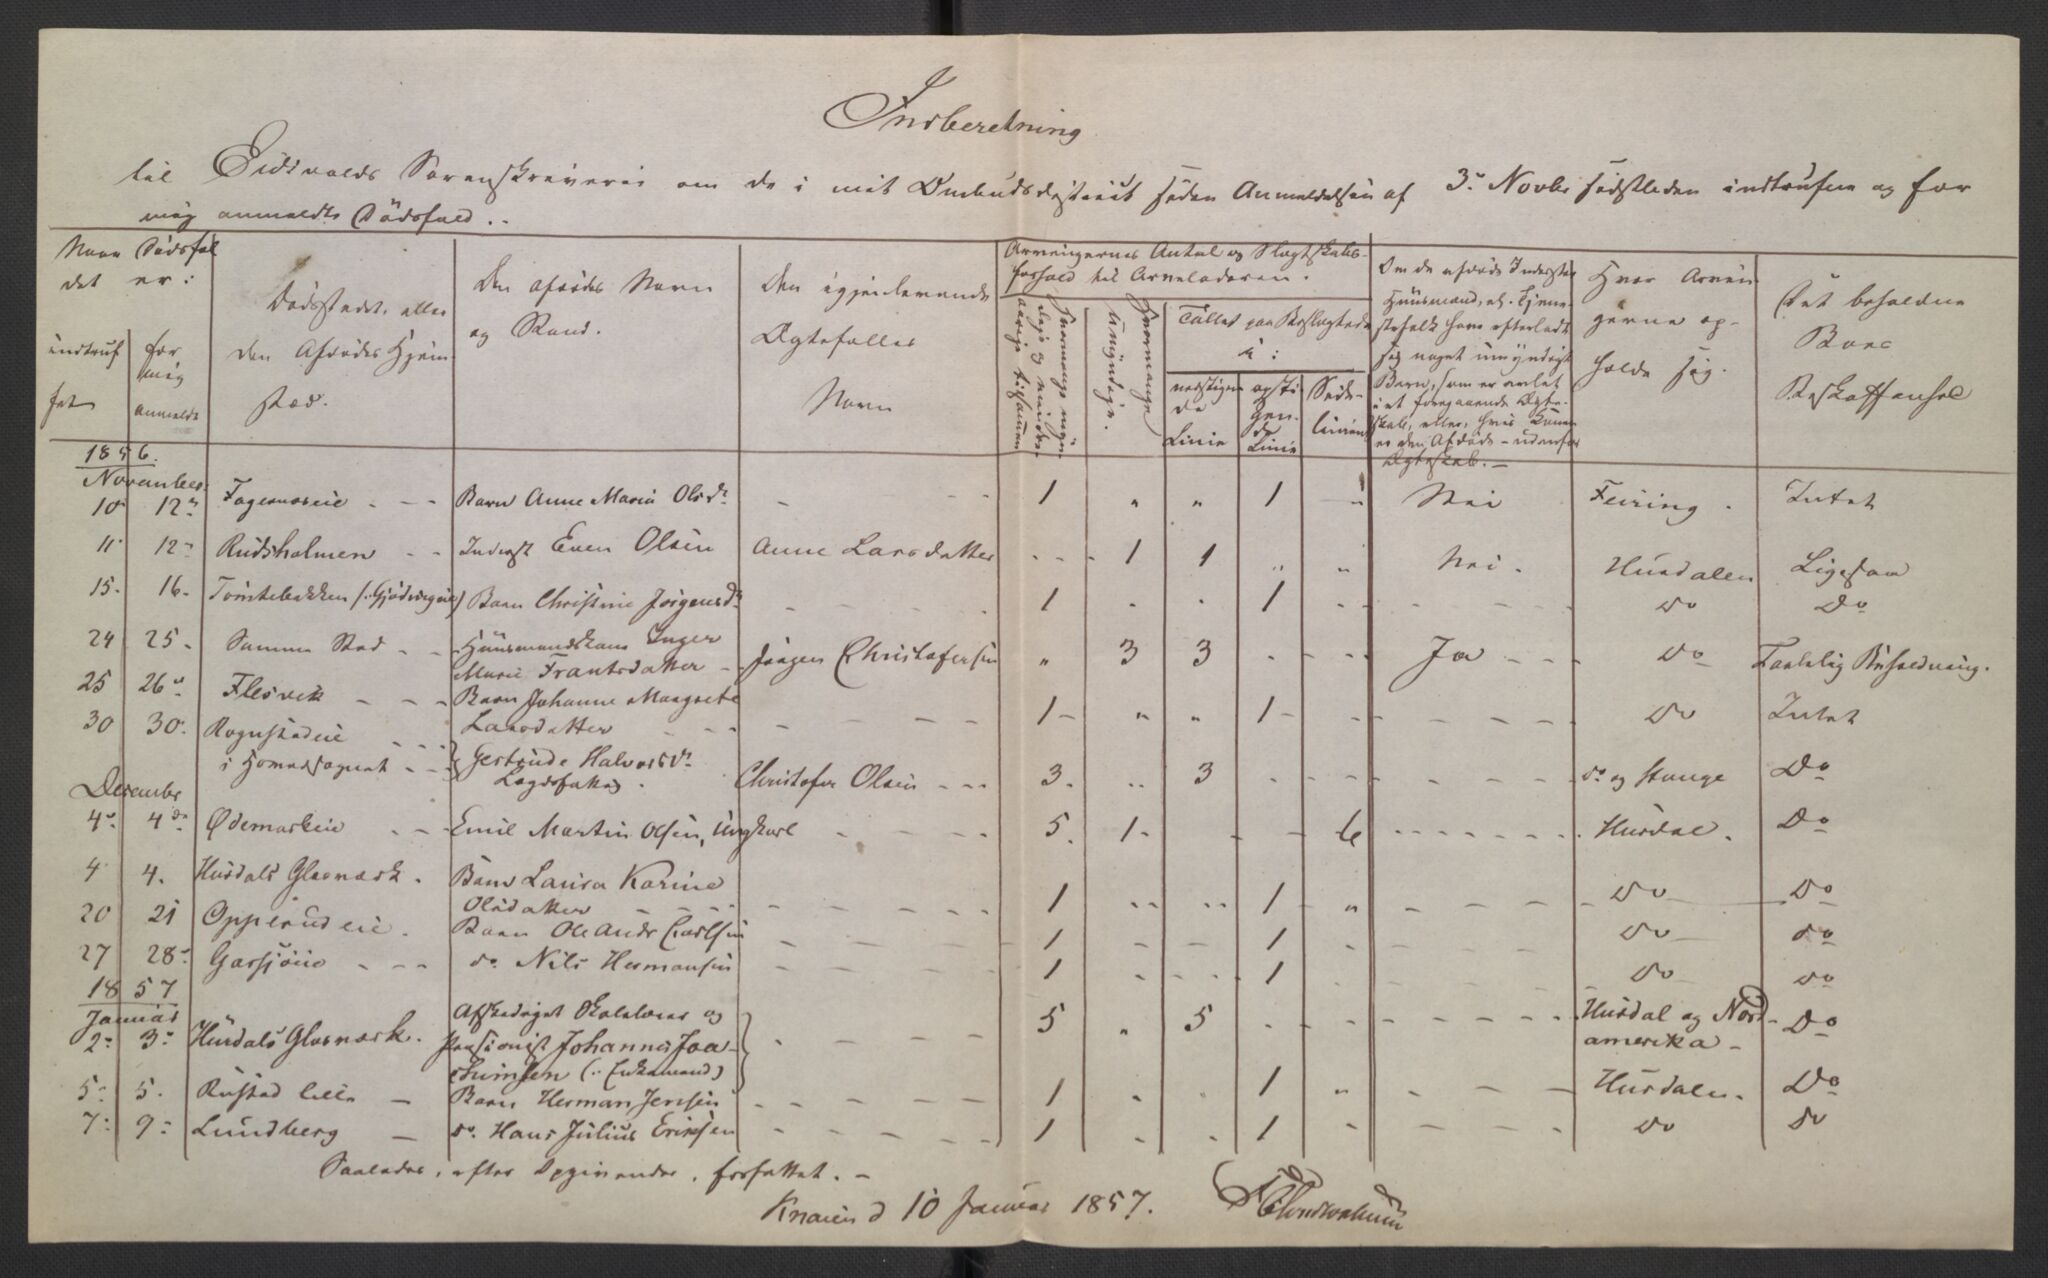 Indberetning
til Eidsvolds Sorenskriverie om de i mit Ombudsdistrict siden Anmeldelsen af 3. Novbr sidstleden indtrufne og for
mig anmeldte Dødsfald.
Naar Dødsfal
det er:
indtruf
fet
for
mig
anmeldt
Dødsstedet, eller
den Afdødes Hjem-
sted.
Den afdødes Navn
og Stand.
Den igjenlevende
Ægtefælles
Navn
Arvingernes Antal og Slægtskabs-
forhold til Arveladeren.
Hvormange myn-
dige og minder-
aarige tilsammen
Hvormange
Umyndige.
Tallet paa Beslægtede
i:
nedstigen
de
Linie
opsti
gen-
de
Linie
Side-
linien
Om de afdøde Inderster
Huusmænd, el. Tjene-
stefolk have efterladt
sig noget umyndigt
Barn, som er avlet
i et foregaaende Ægte-
skab, eller, hvis Konen
er den Afdøde - udenfor
Ægteskab. -
Hvor Arvin
gerne op-
holde sig.
Det beholdne
Boes
Beskaffenhed
1856.
November
10 12 Fagernæseie - - - Barn Anne Maria Olsdr - 1 " " 1 " Nei Feiring. Intet
11 12 Rudsholmen - - Inderst Even Olsen Anne Larsdatter - - - 1 1 " " Nei. Hurdalen Ligesaa
15. 16. Tømtebakken (:Gjødingeie) Barn Christine Jørgensdr 1 1 Do Do
24 25. Samme Sted - - Huusmandskone Inger
Marie Frantsdatter - Jørgen Christofersen " 3 3 Ja - - - Do Taalelig Beholdning.
25 26 Flesvik - - - Barn Johanne Margrete
Larsdatter 1 " " 1 Do Intet
30 30. Rognstadeie
i Hovedsognet - - Gertrude Halvorsdr
Lægdsfattig. Christofer Olsen - - - 3. " 3 do og Stange Do
December
4 4 Ødemarkeie - - - Emil Martin Olsen, Ungkarl 5. 1 6 Hurdal. Do
4 4. Hurdals Glasværk. Barn Laura Karine
Olsdatter 1 " " 1 " Do Do
20 21 Opperudeie. Barn Ole Andr Carlsen 1 1 Do do
27 28 Garsjøeie - - - do Nils Hermansen 1 1 Do do
1857
Januar
2 3 Hurdals Glasværk. Afskediget Skolelærer og
Pensionist Johannes Joa-
chimsen (: Enkemand) 5 " 5 Hurdal og Nord-
amerika - Do
5 5. Rustad lille - Barn Herman Jensen 1 1 Hurdalen. Do
7 9 Lundberg - do. Hans Julius Eriksen 1 1 Do Do
Saaledes, efter Opgivender, forfattet. -
Knaien d 10 Januar 1857.